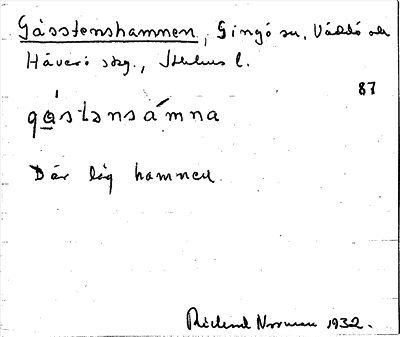 Gåsstenshammen, Singö sn, Väddö och
Häverö skg., Sthlms l.
87
gåstənsámna
Där låg hammed.
Richard Norrman 1932.